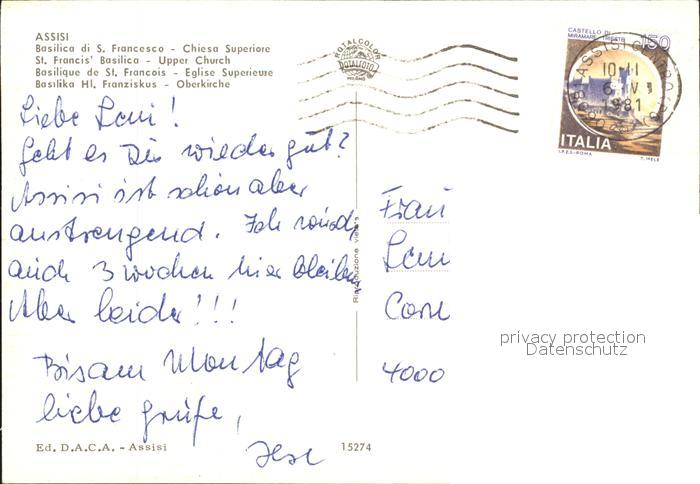 ASSISI
Basilica di S. Francesco - Chiesa Superiore
St. Francis' Basilica - Upper Church
Basilique de St. Francois - Eglise Superieure
Basilika Hl. Franziskus - Oberkirche
ROTALCOLOR
ROTALFOTO
MILANO
CASTELLO DI
MIRAMARE TRIESTE
150
ASSISI
10-11
6 V
1981
ITALIA
I.P.Z.S. - ROMA
T. MELE
Liebe Leni!
Geht es Dir wieder gut?
Assisi ist schön aber
anstrengend. Ich würde
auch 3 wochen hier bleiben
Aber leider!!!
Bis am Montag
liebe grüße,
Ilse
Frau
Leni
4000
privacy protection
Datenschutz
Riproduzione viet.
Ed. D.A.C.A. - Assisi
15274